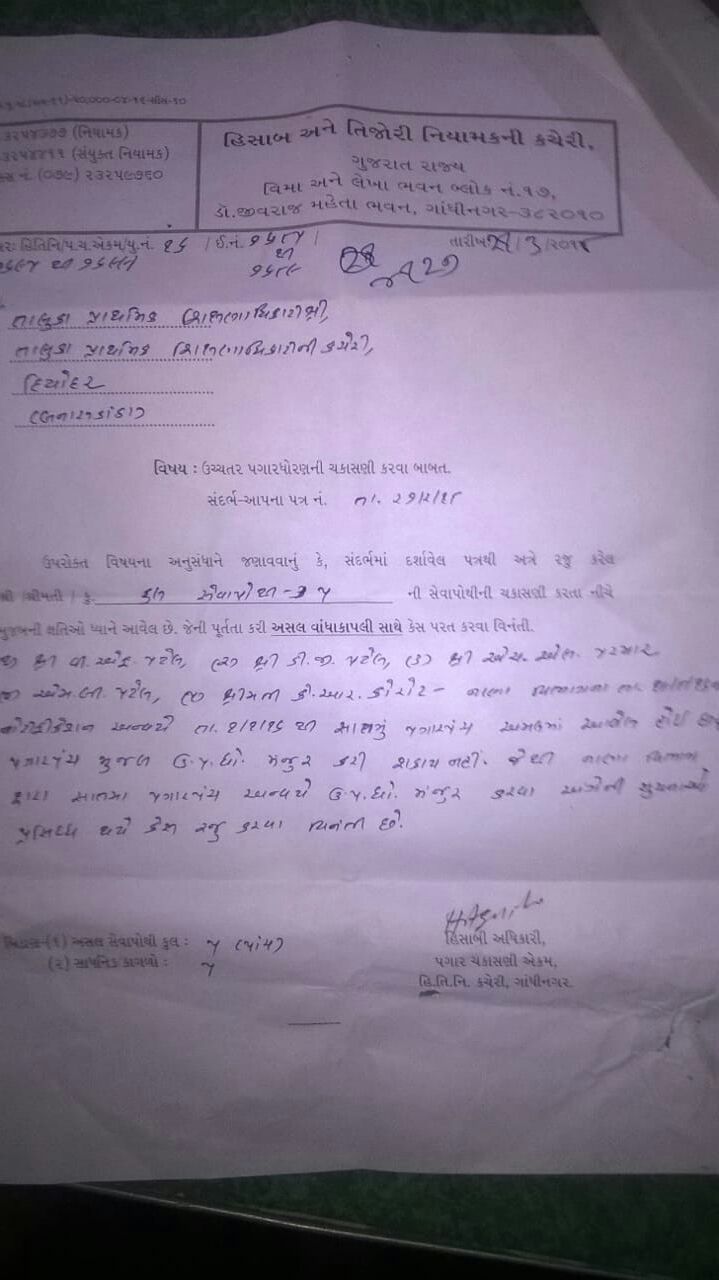 ૩૨૫૪૭૭૭ (નિયામક)
૩૨૫૪૪૧૧ (સંયુક્ત નિયામક)
ક્સ નં. (૦૭૯) ૨૩૨૫૯૭૬૦
હિસાબ અને તિજોરી નિયામકની કચેરી,
ગુજરાત રાજ્ય
વિમા અને લેખા ભવન બ્લોક નં.૧૭,
ડૉ.જીવરાજ મહેતા ભવન, ગાંધીનગર-૩૮૨૦૧૦
હિતિનિ/પ.ચ.એકમ/પુ.નં. ૧૬ / ઈ.નં.
તારીખ
તાલુકા પ્રાથમિક શિક્ષણાધિકારીશ્રી,
તાલુકા પ્રાથમિક શિક્ષણાધિકારીની કચેરી,
દિયોદર
(બનાસકાંઠા)
વિષય : ઉચ્ચતર પગારધોરણની ચકાસણી કરવા બાબત.
સંદર્ભ-આપના પત્ર નં. તા.
ઉપરોક્ત વિષયના અનુસંધાને જણાવવાનું કે, સંદર્ભમાં દર્શાવેલ પત્રથી અત્રે રજુ કરેલ
શ્રી /શ્રીમતી / કુ. કુલ સેવાપોથી - ૫ ની સેવાપોથીની ચકાસણી કરતા નીચે
મુજબની ક્ષતિઓ ધ્યાને આવેલ છે. જેની પૂર્તતા કરી અસલ વાંધાકાપલી સાથે કેસ પરત કરવા વિનંતી.
(૧) શ્રી વી.એચ. પટેલ, (૨) શ્રી ડી.જી. પટેલ, (૩) શ્રી એચ.એલ. પરમાર
(૪) એમ.બી. પટેલ, (૫) શ્રીમતી કે.આર. - નાણા વિભાગના તા.
નોટીફીકેશન અન્વયે તા. ૧/૧/૧૬ થી સાતમું પગારપંચ અમલમાં આવેલ હોઈ
પગારપંચ મુજબ ઉ.પ.ધો. મંજુર કરી શકાય નહીં. જેથી નાણા વિભાગ
દ્વારા સાતમા પગારપંચ અન્વયે ઉ.પ.ધો. મંજુર કરવા અંગેની સુચનાઓ
પ્રસિધ્ધ થયે કેસ રજુ કરવા વિનંતી છે.
(૧) અસલ સેવાપોથી કુલ : ૫ (પાંચ)
(૨) સાધનિક કાગળો : ૫
હિસાબી અધિકારી,
પગાર ચકાસણી એકમ,
હિ.તિ.નિ. કચેરી, ગાંધીનગર.